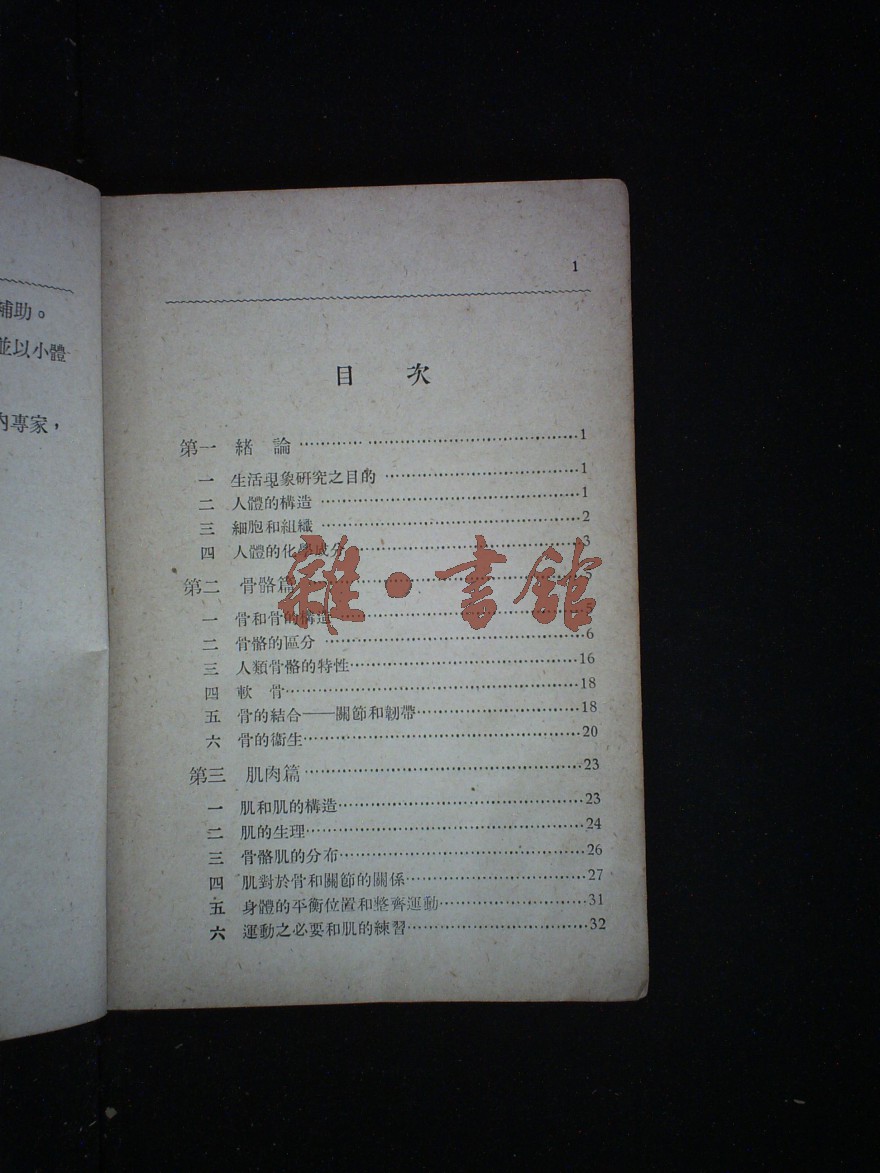 補助。
並以小體
內專家，
1
目 次
第一 緒 論…………………………………1
一 生活現象研究之目的…………………………1
二 人體的構造…………………………1
三 細胞和組織…………………………2
四 人體的化學成分…………………………3
第二 骨骼篇…………………………5
一 骨和骨的構造…………………………5
二 骨骼的區分…………………………6
三 人類骨骼的特性…………………………16
四 軟 骨…………………………18
五 骨的結合——關節和韌帶…………………………18
六 骨的衞生…………………………20
第三 肌肉篇…………………………23
一 肌和肌的構造…………………………23
二 肌的生理…………………………24
三 骨骼肌的分布…………………………26
四 肌對於骨和關節的關係…………………………27
五 身體的平衡位置和整齊運動…………………………31
六 運動之必要和肌的練習…………………………32
雜·書館